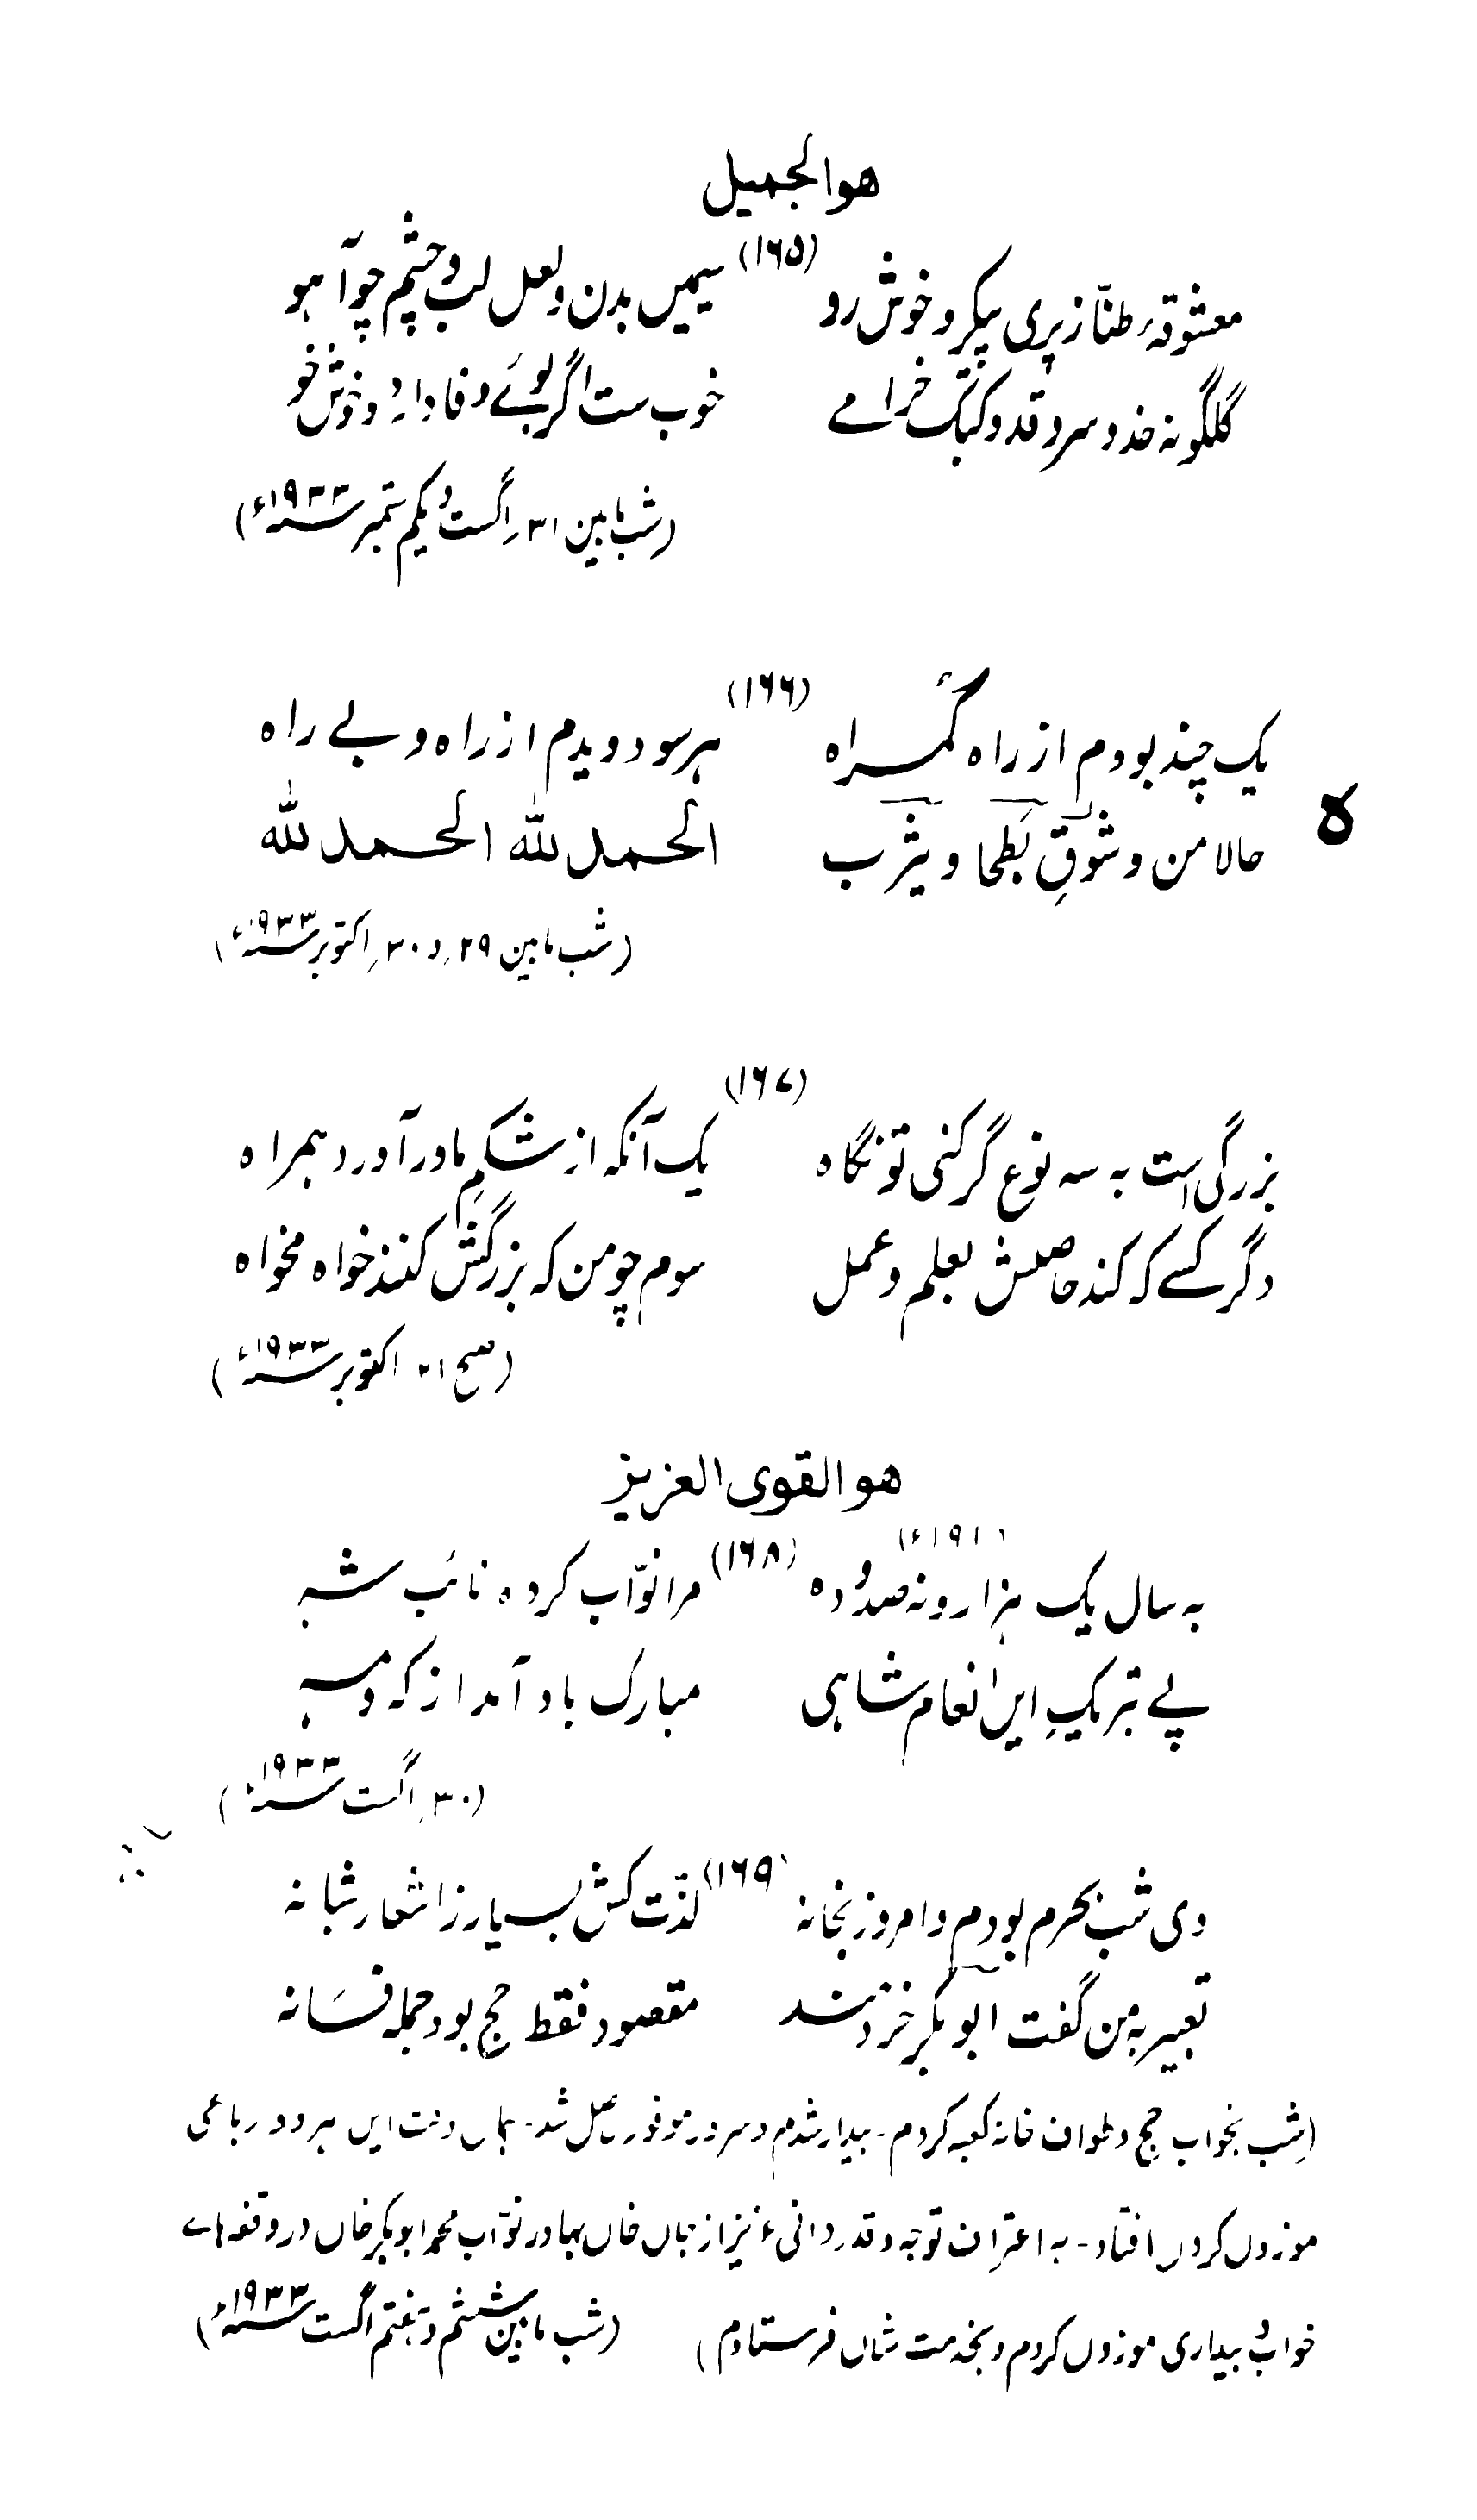 هوالجمیل
(۱۶۵)
معشوقۂ طنّاز پری پیکر و خوش رو سیمیں بدن و لعل لب و چشم چو آہو
گلگونہ خد و سرو قد و کبک خرامے خوب ست اگر بُوئے وفا دارد و خوش خو
(شب مابین ۳۱ اگست و یکم ستمبر ۱۹۳۳ء)
(۱۶۶)
یک چند بودم از راہ گمراہ ہر سو دویدم از راہ و بے راہ
حالا من و شوقِ بطحا و یثرب الحمد للہ الحمد للہ
ہ
(شب مابین ۲۹ و ۳۰ اکتوبر ۱۹۳۳ء)
(۱۶۷)
بزرگی است بہ سہ نوع گر کنی تو نگاہ یک آنکہ از شکم مادر آورد ہمراہ
دگر کسے کہ کند حاصلش بعلم و عمل سوم چو من کہ بزرگش کنند خواہ مخواہ
(صبح ۳۱ اکتوبر ۱۹۳۳ء)
هوالقوی العزیز
(۱۹۱۰ء)
(۱۶۸)
بہ سال یک ہزار و نہ صد و دہ مرا نوّاب کردہ نائب شہ
پے تبریکِ ایں انعام شاہی مبارک باد آمد از کہ و مہ
(۳۰ اگست ۱۹۳۳ء)
(۱۶۹)
دی شب بحرم بودم و امروز بخانہ لذّت کش بسیار ز اشعار شبانہ
تعبیر بہ من گفت ابوبکر خردمند مقصود فقط حج بود و جملہ فسانہ
(شب بخواب حج و طواف خانہ کعبہ کردم۔ بیدار شدم و سرور موفور حاصل شد۔ ہماں وقت ایں ہر دو رباعی
موزوں کردن افتاد۔ بہ اعتراف توجہ و قدردانی عزیز از جاں خاں بہادر نوّاب محمد ابوبکر خاں در وقفہ ہائے
خواب بیداری موزوں کردم و بخدمت شاں فرستادم) (شب مابین ششم و ہفتم اگست ۱۹۳۳ء)